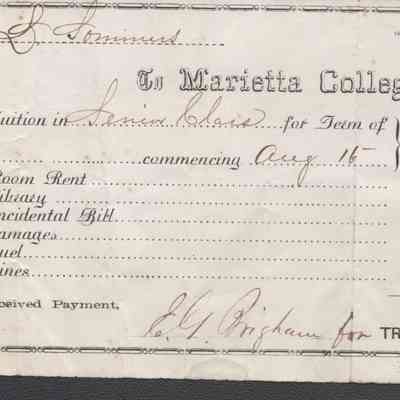 S Sommers
To Marietta Colleg
uition in Senior Class for Term of
commencing Aug 15
oom Rent
ibrary
ncidental Bill
amages
uel
ines
ceived Payment,
E. G. Brigham for TR